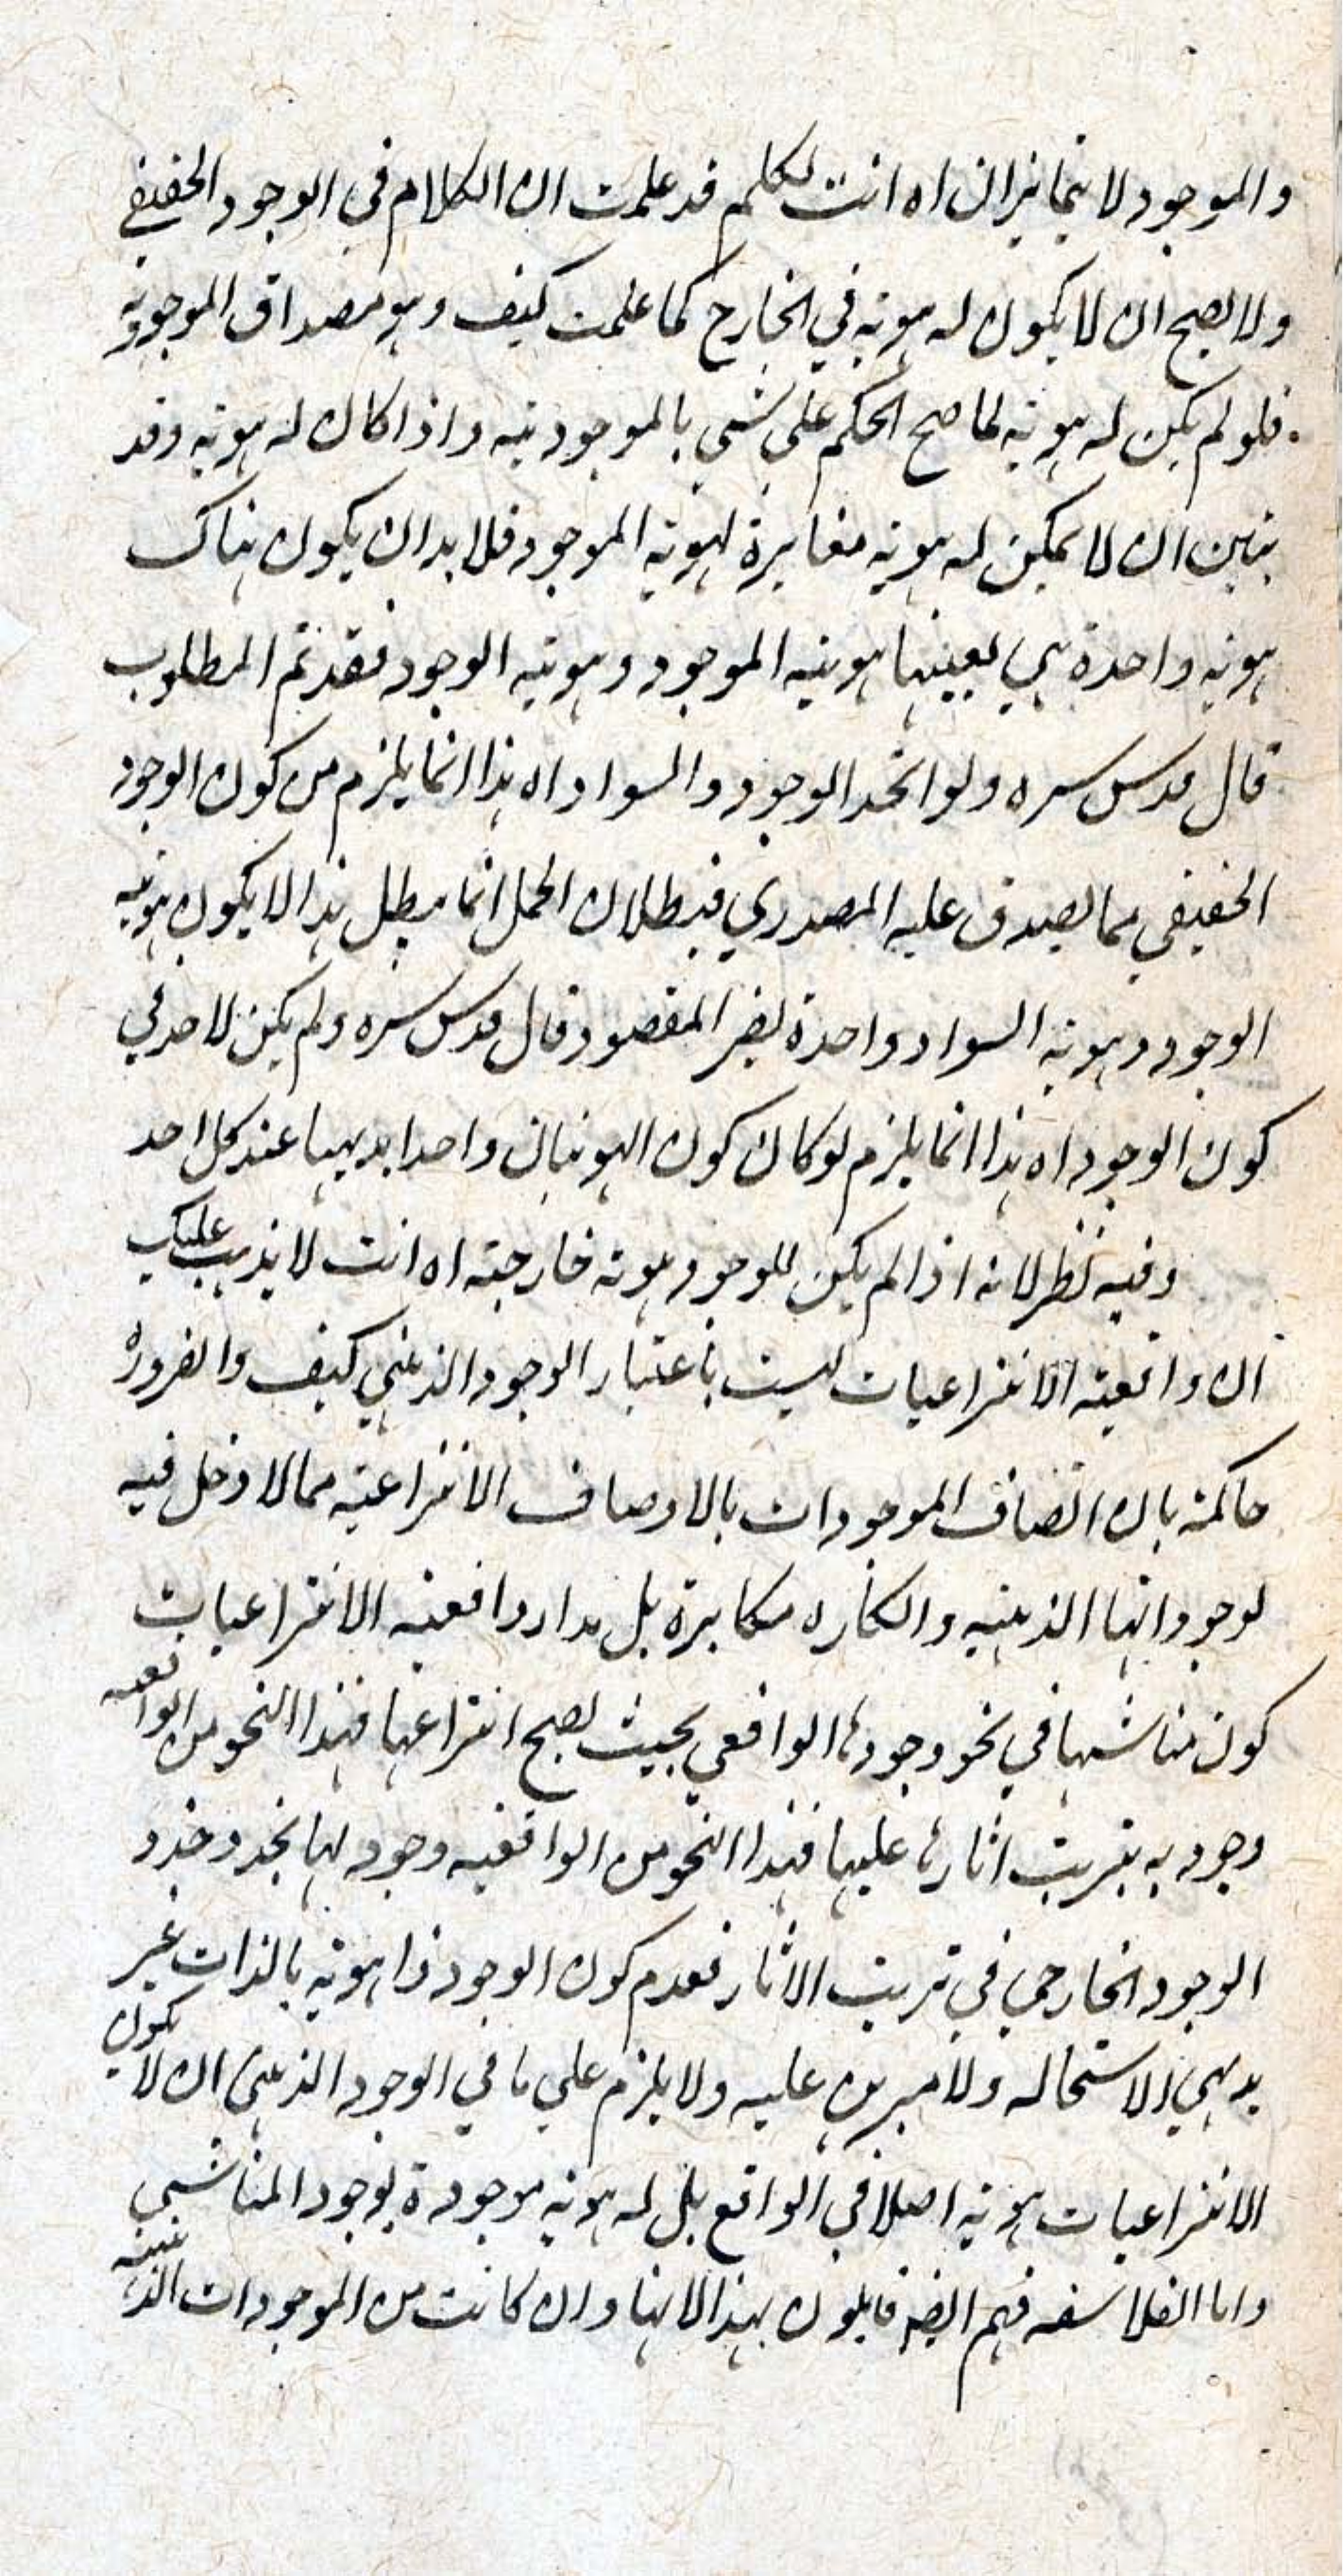 والموجود لا يتمايزان اه انت لكلم قد علمت ان الكلام في الوجود الحقيقي
ولا يصح ان لا يكون له هوية في الخارج كما علمت كيف وهو مصداق الموجودية
فلو لم يكن له هوية لما صح الحكم على شيء بالموجودية واذا كان له هوية وقد
تبين ان لا يمكن له هوية مغايرة لهوية الموجود فلا بد ان يكون هناك
هوية واحدة هي بعينها هوية الموجود وهوية الوجود فقد تم المطلوب
قال قدس سره ولو اتحد الوجود والسواد اه هذا انما يلزم من كون الوجود
الحقيقي مما يصدق عليه المصدري فبطلان الحمل انما يبطل هذا لا يكون هوية
الوجود وهوية السواد واحدة يضر المقصود قال قدس سره ولم يكن لاحد في
كون الوجود اه هذا انما يلزم لو كان كون الهويتان واحدا بديهيا عند كل احد
وفيه نظر لانه اذا لم يكن للوجود هوية خارجية اه انت لا يذهب عليك
ان واقعية الانتزاعيات ليست باعتبار الوجود الذهني كيف والضرورة
حاكمة بان اتصاف الموجودات بالاوصاف الانتزاعية مما لا دخل فيه
لوجوداتها الذهنية وانكاره مكابرة بل مدار واقعية الانتزاعيات
كون مناشيها في نحو وجودها الواقعي بحيث يصح انتزاعها فهذا النحو من الواقعية
وجود به يترتب اثارها عليها فهذا النحو من الواقعية وجود لها يحذو حذو
الوجود الخارجي في ترتب الاثار فعدم كون الوجود ذا هوية بالذات غير
بديهي الاستحالة ولا مبرهن عليه ولا يلزم على نافي الوجود الذهني ان لا يكون
الانتزاعيات هوية اصلا في الواقع بل له هوية موجودة بوجود المناشي
واما الفلاسفه فهم ايضا قايلون بهذا لانها وان كانت من الموجودات الذهنية